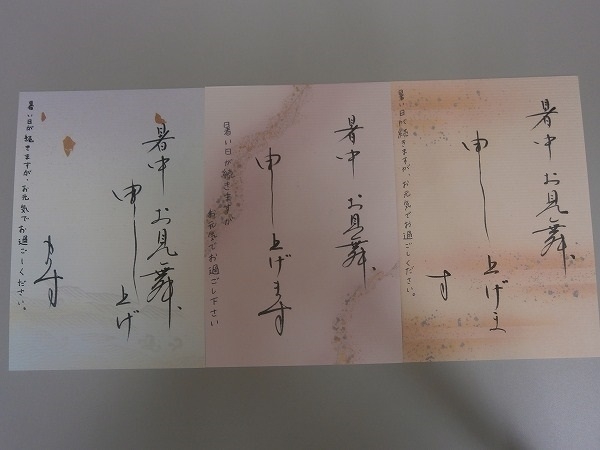 暑中お見舞
申し上げ
ます
暑い日が続きますが、お元気でお過ごしください。
暑中お見舞
申し上げます
暑い日が続きますが
お元気でお過ごし下さい
暑中お見舞
申し上げま
す
暑い日が続きますが、お元気でお過ごしください。